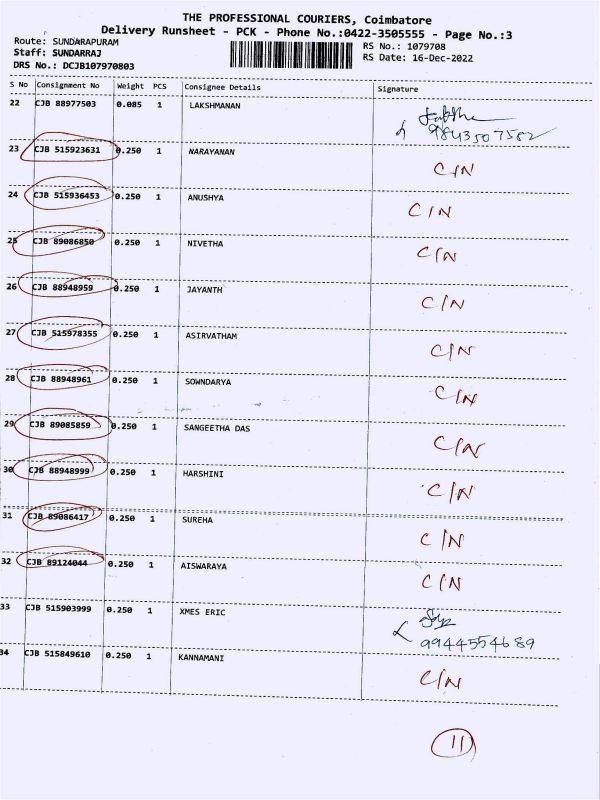 THE PROFESSIONAL COURIERS, Coimbatore
Delivery Runsheet - PCK - Phone No.:0422-3505555 - Page No.:3
Route: SUNDARAPURAM
Staff: SUNDARRAJ
DRS No.: DCJB107970803
RS No.: 1079708
RS Date: 16-Dec-2022
S No Consignment No Weight PCS Consignee Details Signature
22 CJB 88977503 0.085 1 LAKSHMANAN
9843507582
23 CJB 515923631 0.250 1 NARAYANAN C/N
24 CJB 515936453 0.250 1 ANUSHYA C/N
25 CJB 89086850 0.250 1 NIVETHA C/N
26 CJB 88948959 0.250 1 JAYANTH C/N
27 CJB 515978355 0.250 1 ASIRVATHAM C/N
28 CJB 88948961 0.250 1 SOWNDARYA C/N
29 CJB 89085859 0.250 1 SANGEETHA DAS C/N
30 CJB 88948999 0.250 1 HARSHINI C/N
31 CJB 89086417 0.250 1 SUREHA C/N
32 CJB 89124044 0.250 1 AISWARAYA C/N
33 CJB 515903999 0.250 1 XMES ERIC
9944554689
34 CJB 515849610 0.250 1 KANNAMANI C/N
11